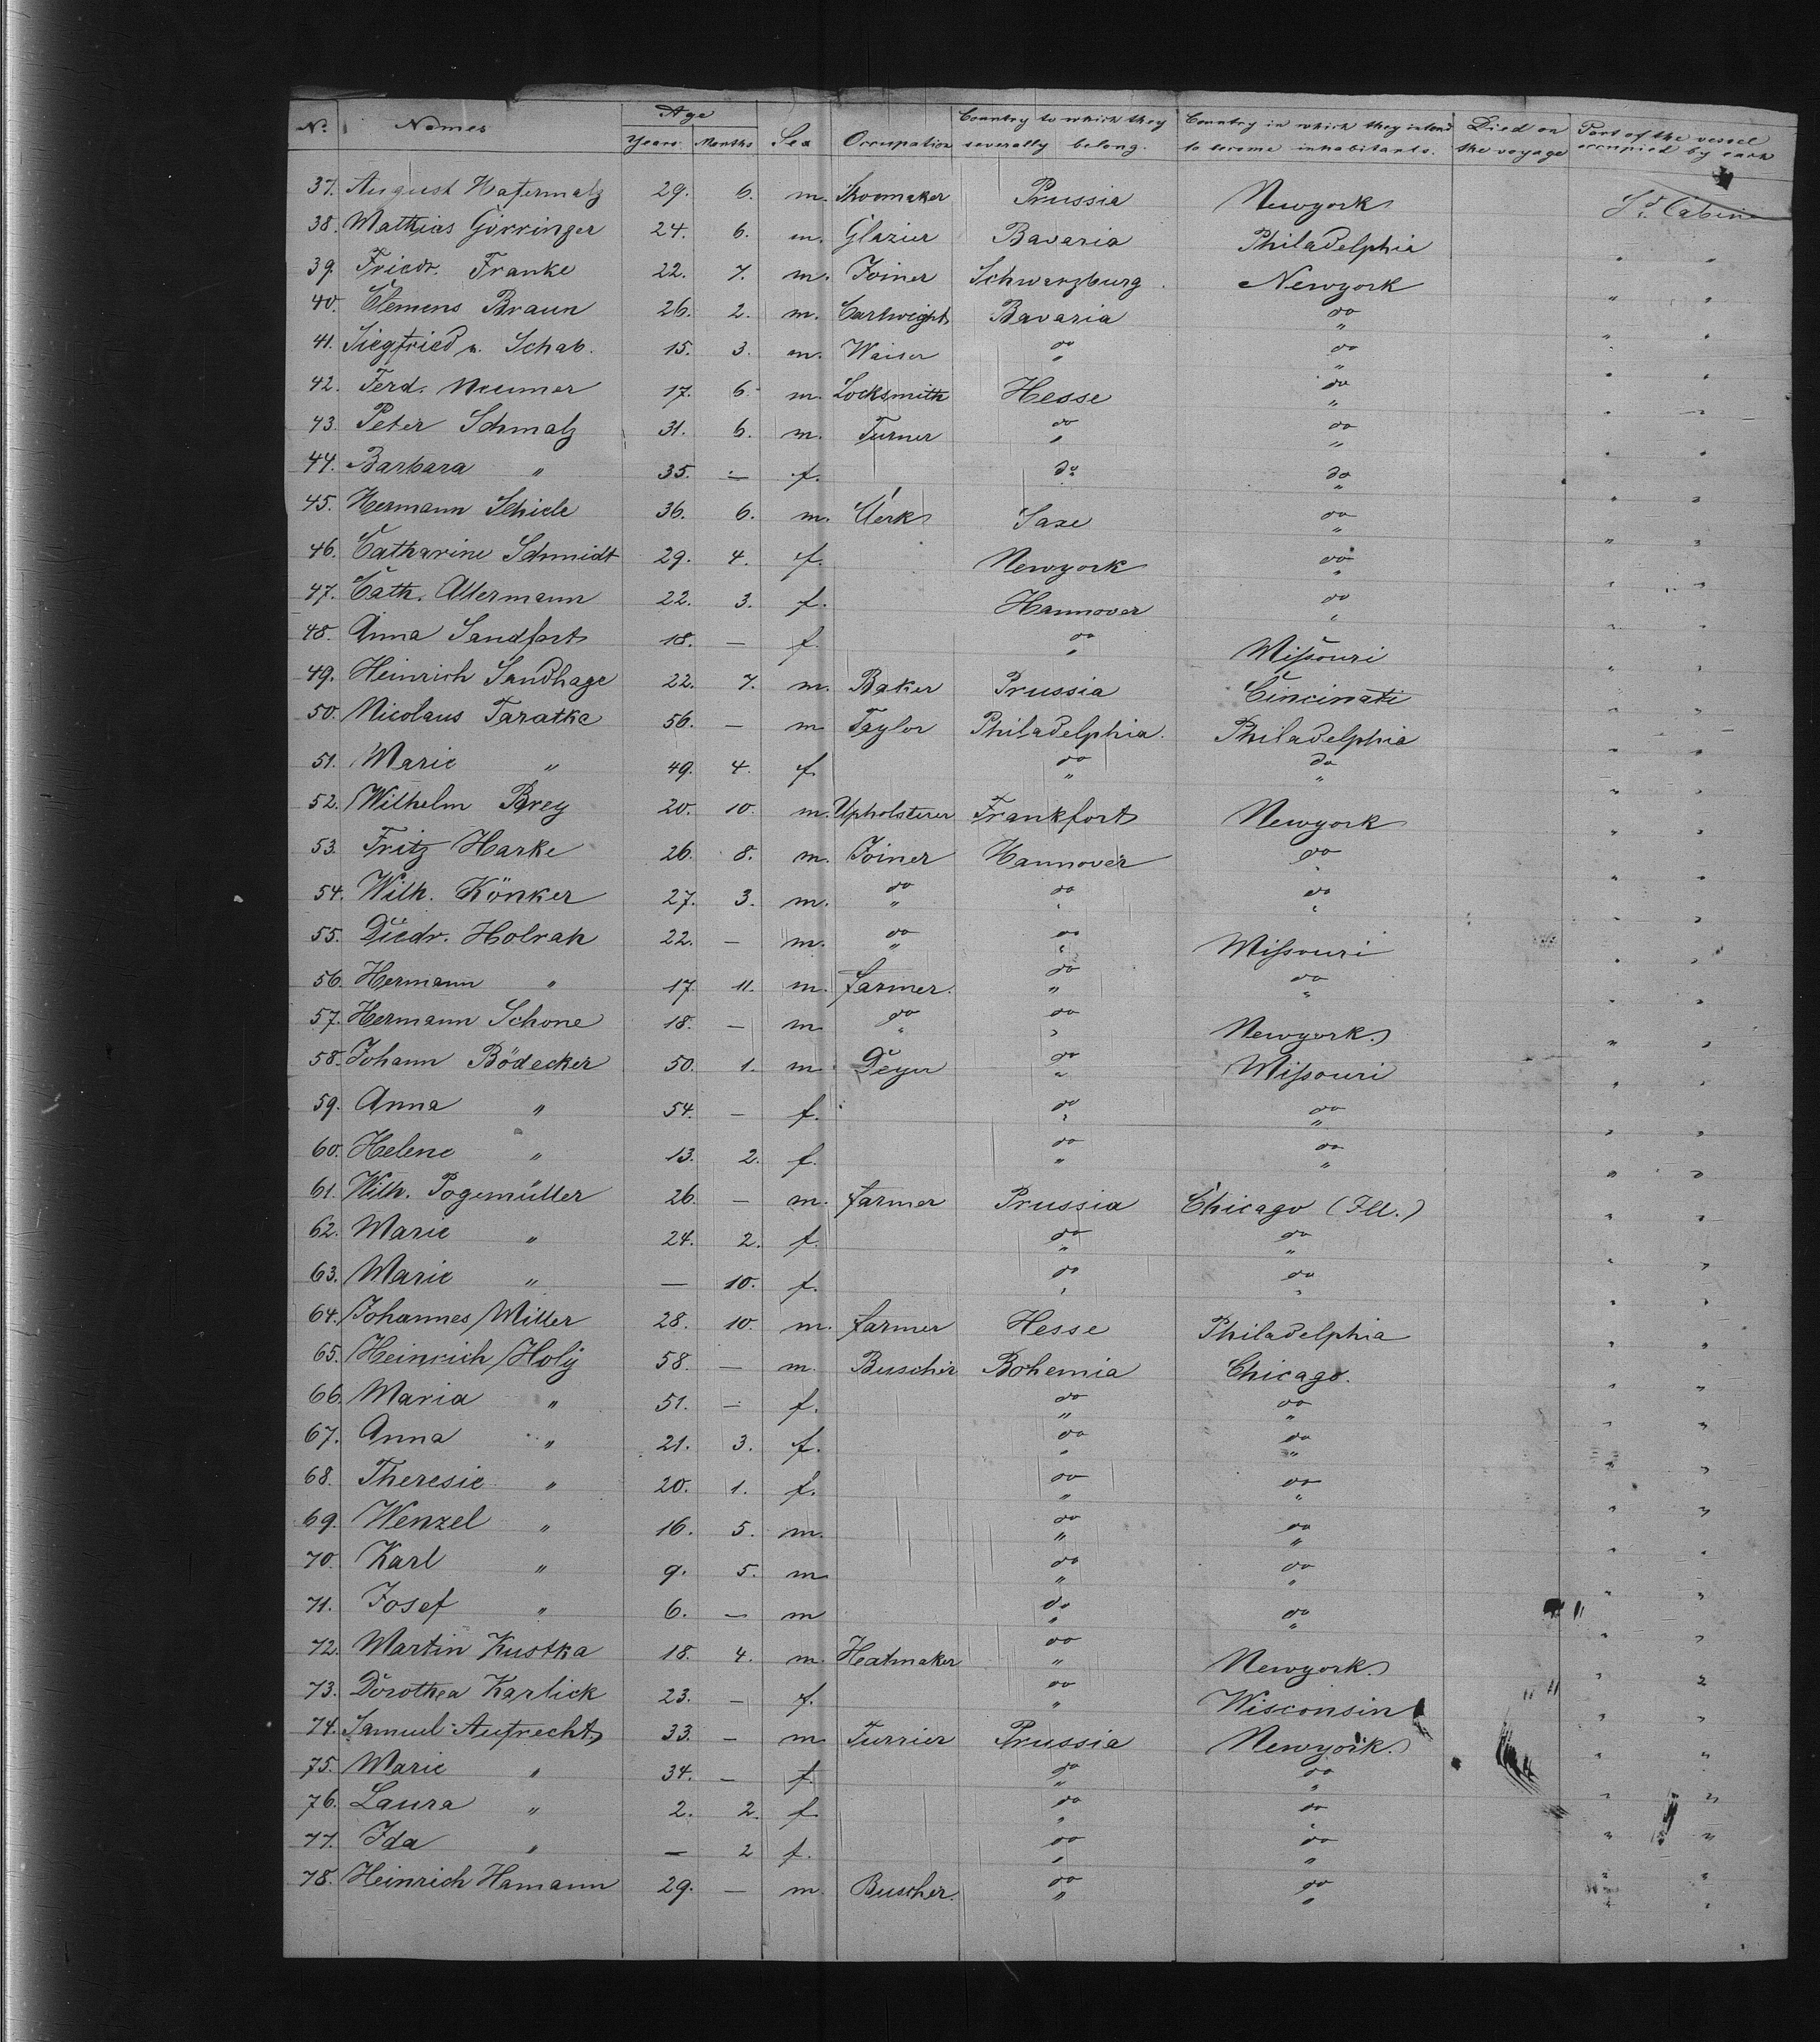 No. Names Age Sex Occupation Country to which they Country in which they intend Died on Part of the vessel
Years Months severally belong. to become inhabitants. the voyage occupied by each
37. August Hafermalz 29. 6. m. Shoemaker Prussia Newyork Sd. Cabine
38. Mathias Görringer 24. 6. m. Glazier Bavaria Philadelphia " "
39. Friedr. Franke 22. 7. m. Joiner Schwarzburg Newyork " "
40. Clemens Braun 26. 2. m. Cartwight Bavaria do " "
41. Siegfried Schab. 15. 3. m. do do " "
42. Ferd. Neumer 17. 6. m. Locksmith Hesse do " "
43. Peter Schmalz 31. 6. m. Turner do do " "
44. Barbara " 35. — f. do do " "
45. Hermann Schiele 36. 6. m. Clerk Saxe do " "
46. Catharine Schmidt 29. 4. f. Newyork do " "
47. Cath. Allermann 22. 3. f. Hannover do " "
48. Anna Sandfort 18. — f. do Missouri " "
49. Heinrich Sandhage 22. 7. m. Baker Prussia Cincinati " "
50. Nicolaus Taratka 56. — m Taylor Philadelphia. Philadelphia " "
51. Marie " 49. 4. f. do do " "
52. Wilhelm Brey 20. 10. m. Upholsterer Frankfort Newyork " "
53. Fritz Harke 26. 8. m. Joiner Hannover do " "
54. Wilh. Könker 27. 3. m. do do do " "
55. Diedr. Holrah 22. — m. do do Missouri " "
56. Hermann " 17. 11. m. farmer. do do " "
57. Hermann Schone 18. — m do do Newyork " "
58. Johann Bödecker 50. 1. m Deyer do Missouri " "
59. Anna " 54. — f. do do " "
60. Helene " 13. 2. f. do do " "
61. Wilh. Pogemüller 26. — m. farmer Prussia Chicago (Ill.) " "
62. Marie " 24. 2. f. do do " "
63. Marie " — 10. f. do do " "
64. Johannes Miller 28. 10. m. farmer Hesse Philadelphia " "
65. Heinrich Holÿ 58. — m. Buscher Bohemia Chicago. " "
66. Maria " 51. — f. do do " "
67. Anna " 21. 3. f. do do " "
68. Theresie " 20. 1. f. do do " "
69. Wenzel " 16. 5. m. do do " "
70. Karl " 9. 5. m do do " "
71. Josef " 6. — m do do " "
72. Martin Kustka 18. 4. m. Hatmaker do Newyork " "
73. Dorothea Karlick 23. — f. do Wisconsin " "
74. Samuel Aufrecht 33. — m Furrier Prussia Newyork. " "
75. Marie " 34. — f. do do " "
76. Laura " 2. 2. f do do " "
77. Ida " — 2 f. do do " "
78. Heinrich Hamann 29. — m. Buscher. do do " "